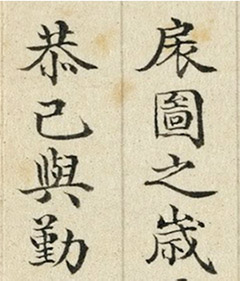 扆圖之歲
恭己與勤